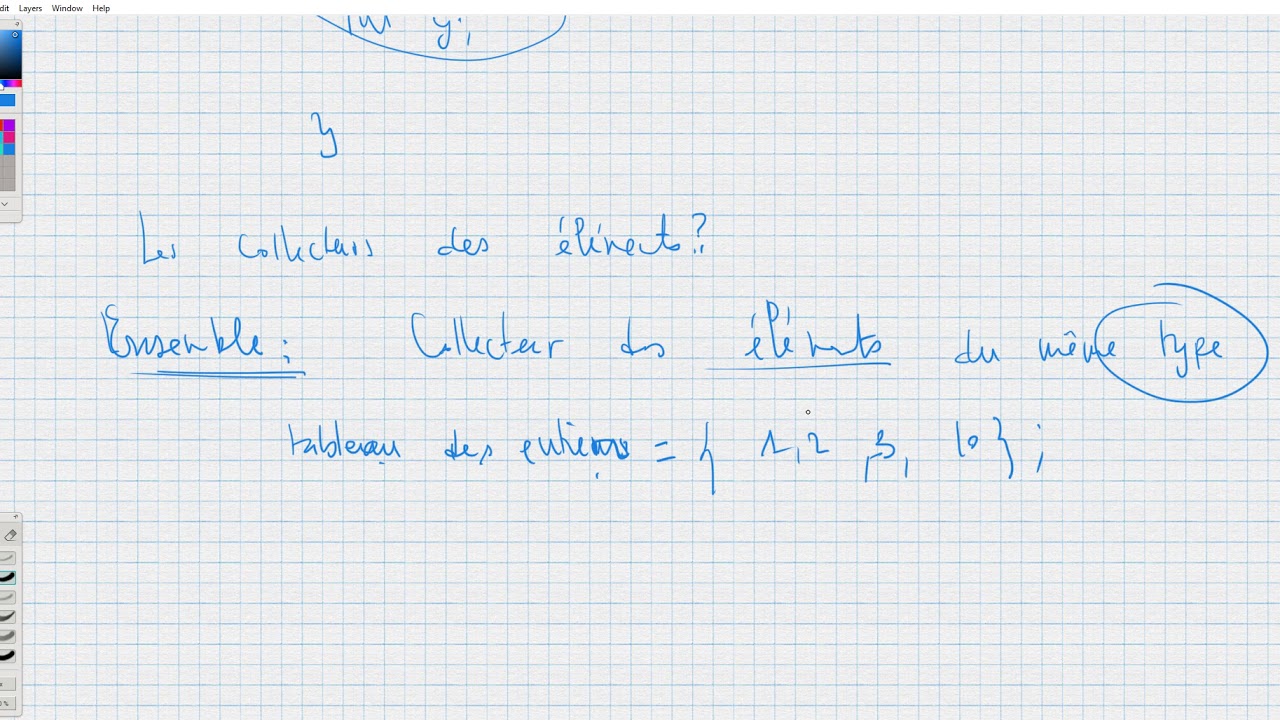 dit Layers Window Help
y;
}
Les collecteurs des éléments?
Ensemble: Collecteur des éléments du même type
tableau des entiers = { 1,2 ,3, 10};